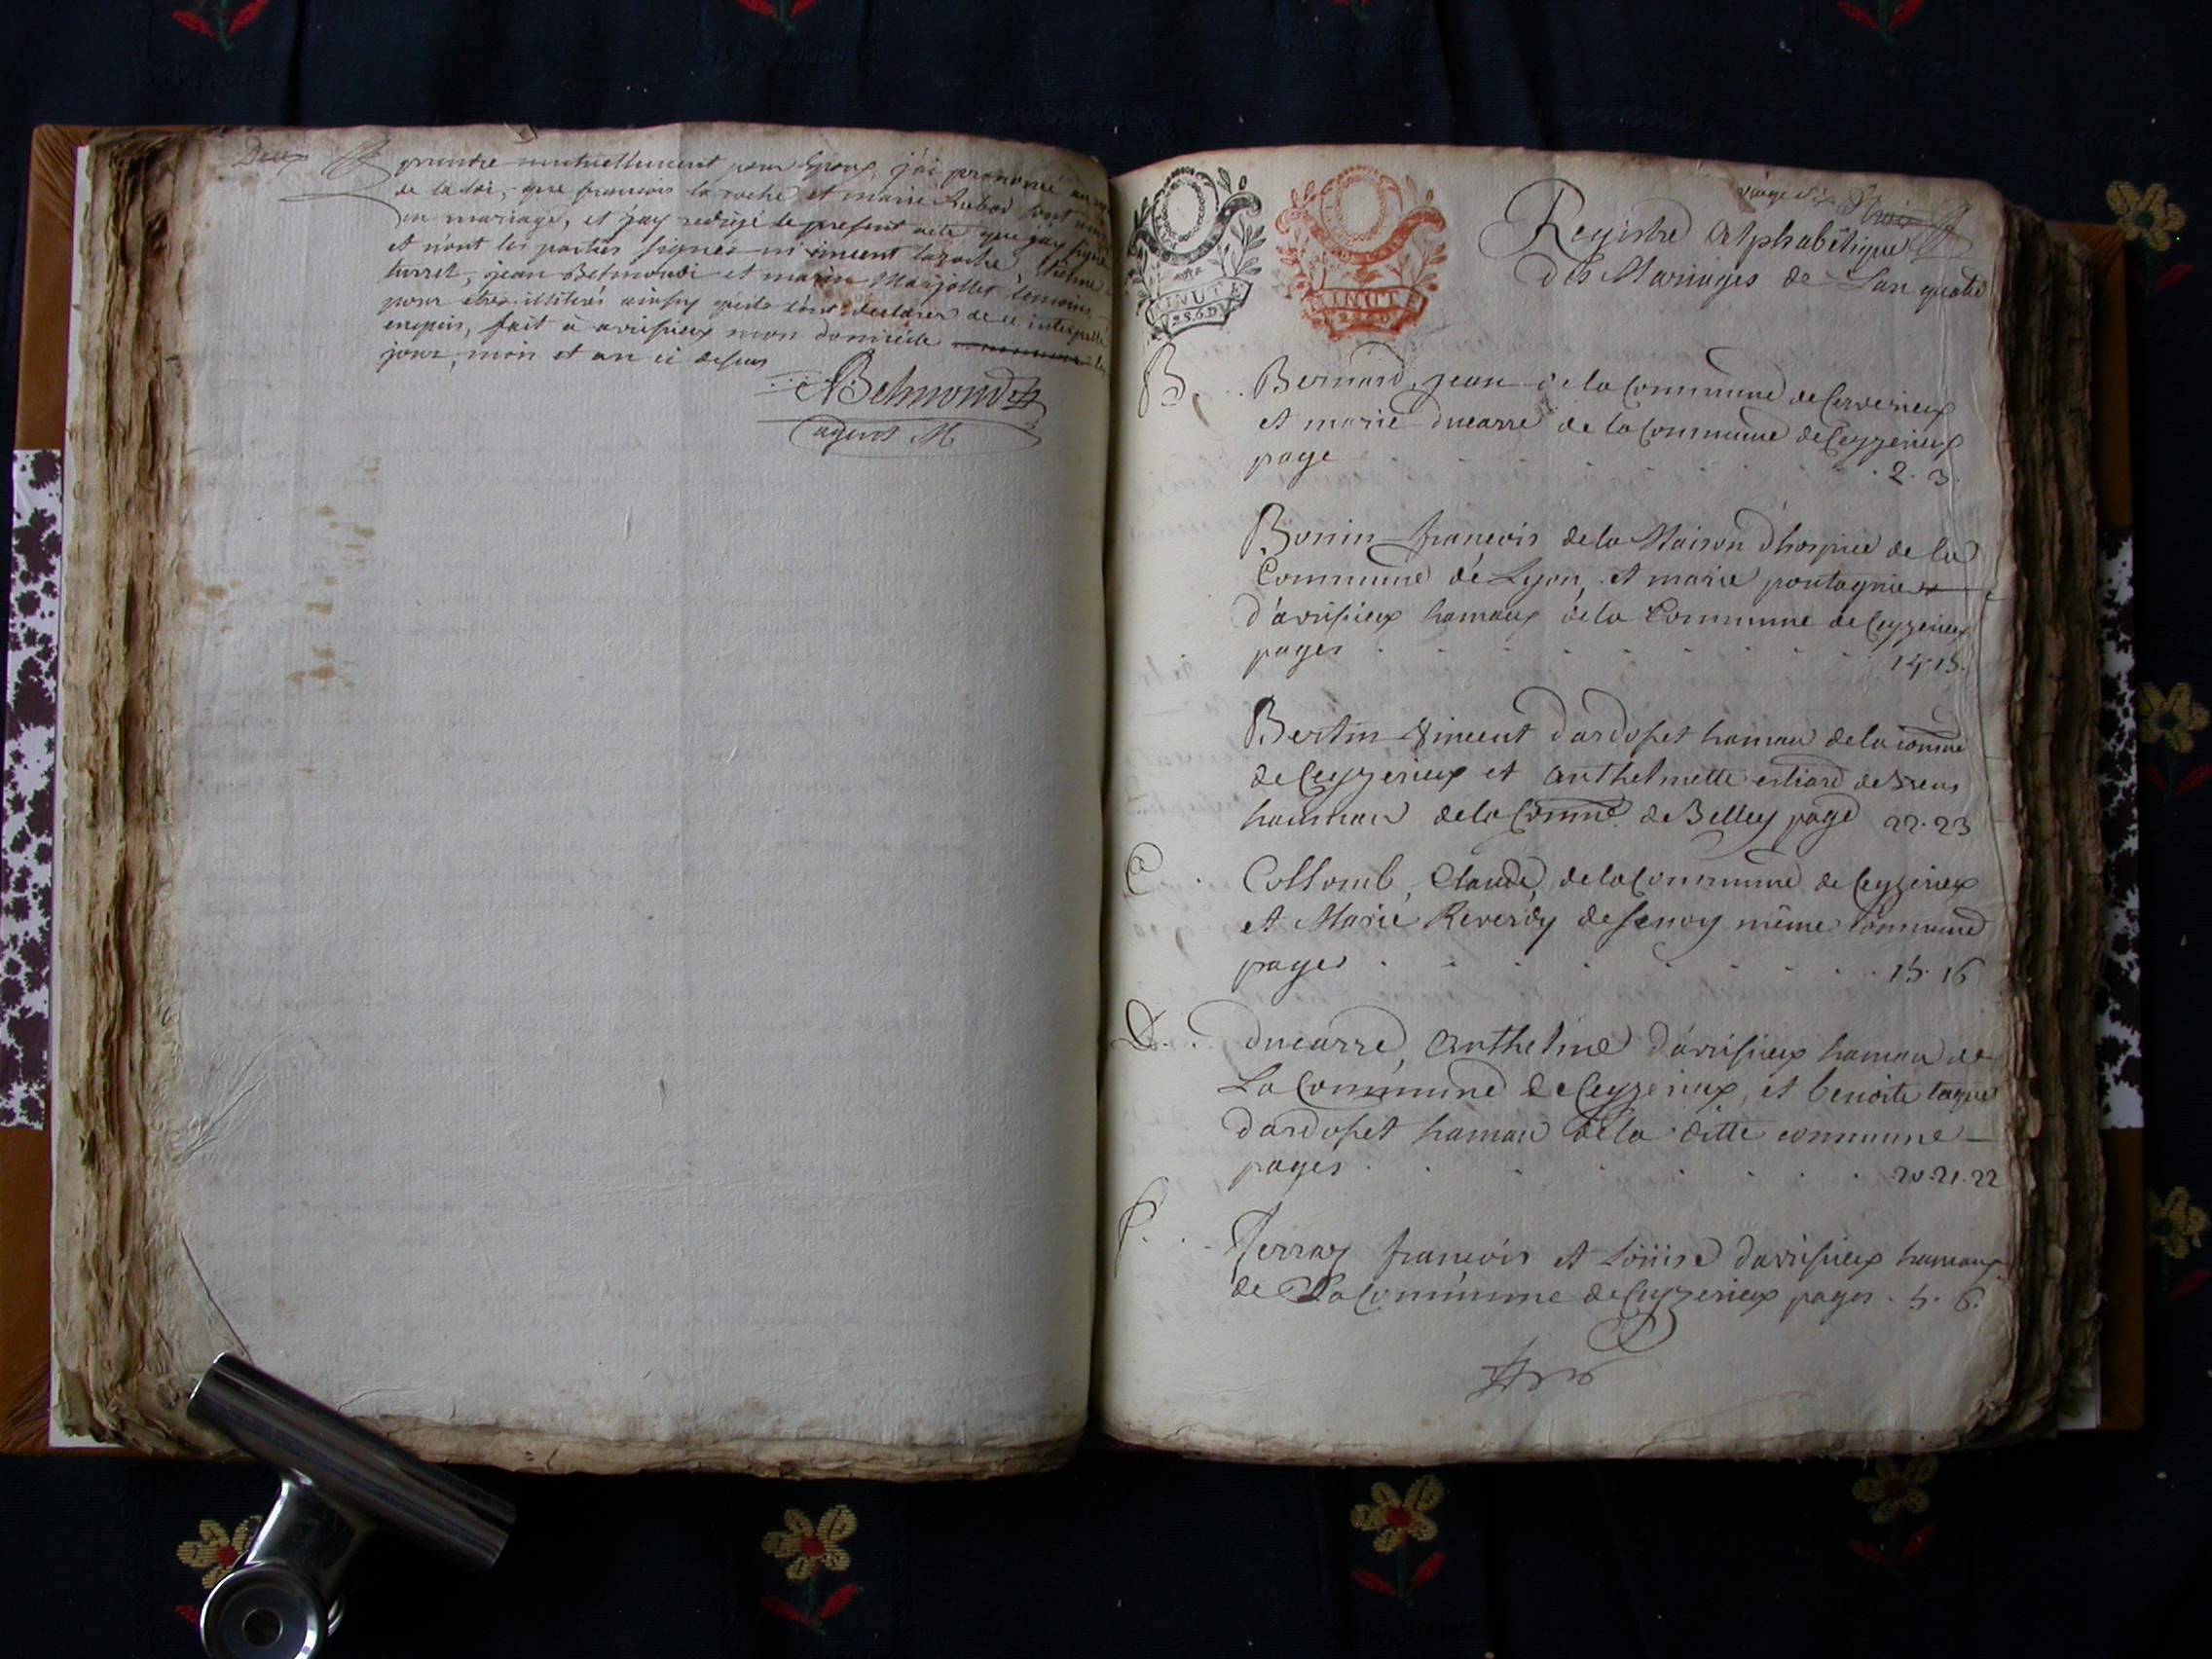 Deux
prendre mutuellement pour Epoux, j'ai prononcé au
de la loi, que francois la roche et marie Rubod sont unis
en mariage, et j'ay redigé le present acte que j'ay signé
et n'ont les parties signés ni vincent laroche, etienne
turrel, jean Belmondi et marin Marjollet temoins
pour etre illitérés ainsy qu'ils l'ont declarer de ce interpellé
enquis, fait à avrisieux mon domicile
jour, mois et an ci dessus
Belmond
agent M
Trois
Registre Alphabêtique
Des Mariages de Lan quatre
MINUTE MINUTE
B. Bernard, jean de la Commune de Cerverieux
et marie ducarre de la Commune de Ceyzerieux
page 2. 3.
Bonin francois de la Maison d'hospice de la
Commune de Lyon, et marie pontagnier
d'avrisieux hamaux de la Commune de Ceyzerieux
pages 14. 15.
Bertin Vincent dardosset hamau de la comme
de Ceyzerieux et anthelmette estiard de Brens
hammau de la Comme de Belley page 22. 23
C Collomb, Claude, de la Commune de Ceyzerieux
et Marie Reverdy de senoy même Commune
pages 15. 16
D. ducarre, anthelme d'avrisieux hamau de
La Commune de Ceyzerieux, et benoite
dardosset hamau de la ditte commune
pages 20. 21. 22
f. ferraz francois et Loüise davrisieux hamaux
de La Commune de Ceyzerieux pages. 5. 6.